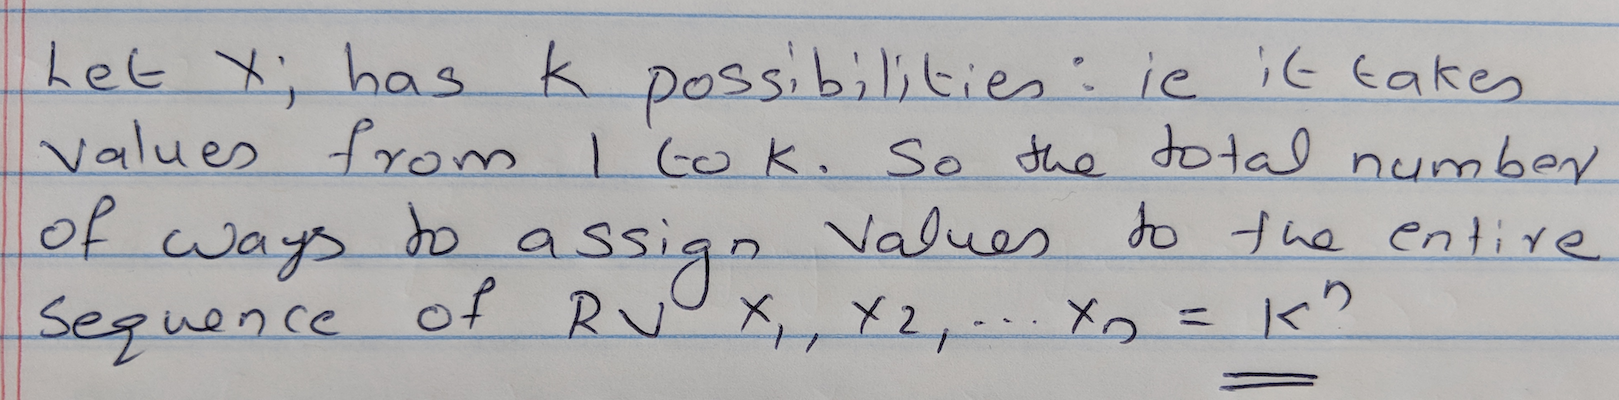 Let Xi has K possibilities: ie it takes
values from 1 to K. So the total number
of ways to assign values to the entire
sequence of RV X1, X2, ... Xn = K^n